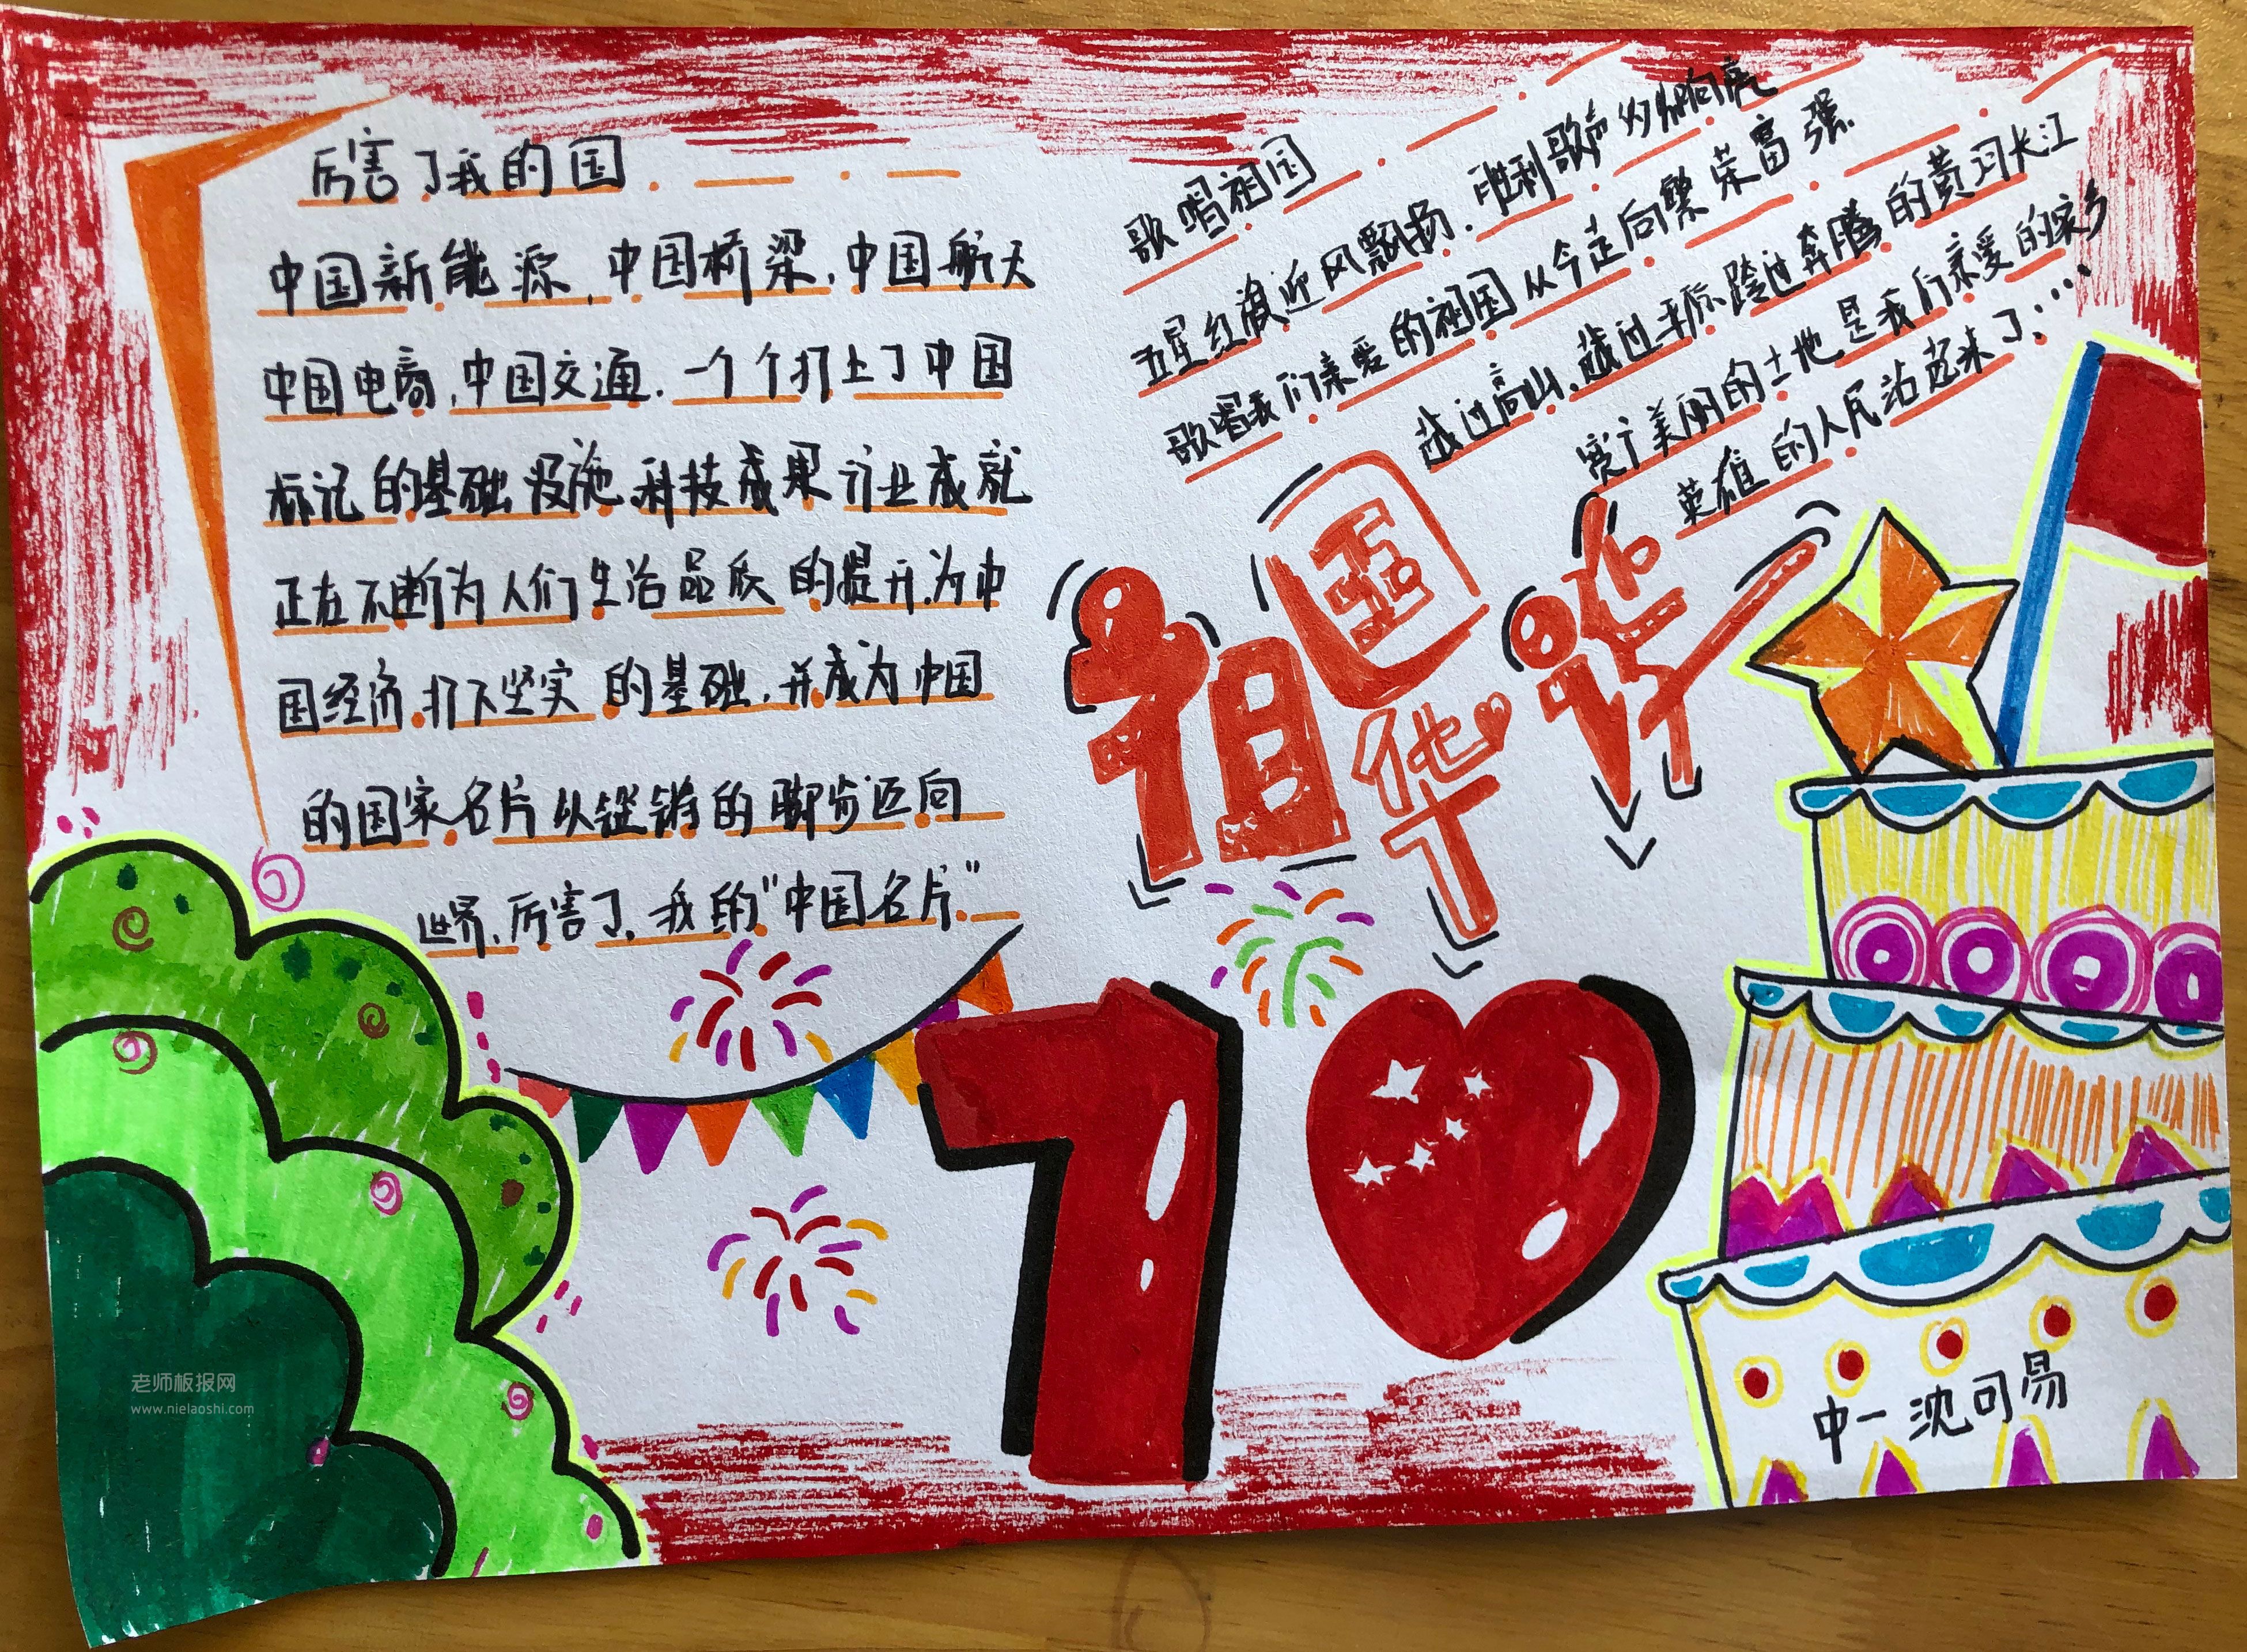 厉害了我的国
中国新能源,中国桥梁,中国航天
中国电商,中国交通.一个个打上了中国
标记的基础设施.科技成果行业成就
正在不断为人们生活品质的提升.为中
国经济.打下坚实的基础,并成为中国
的国家名片以铿锵的脚步迈向
世界,厉害了,我的"中国名片"
歌唱祖国
五星红旗迎风飘扬.胜利歌声多么响亮
歌唱我们亲爱的祖国从今走向繁荣富强
越过高山.越过平原.跨过奔腾的黄河长江
宽广美丽的土地是我们亲爱的家乡
英雄的人民站起来了:…
祖国华诞
70
中一沈可易
老师板报网
www.nielaoshi.com